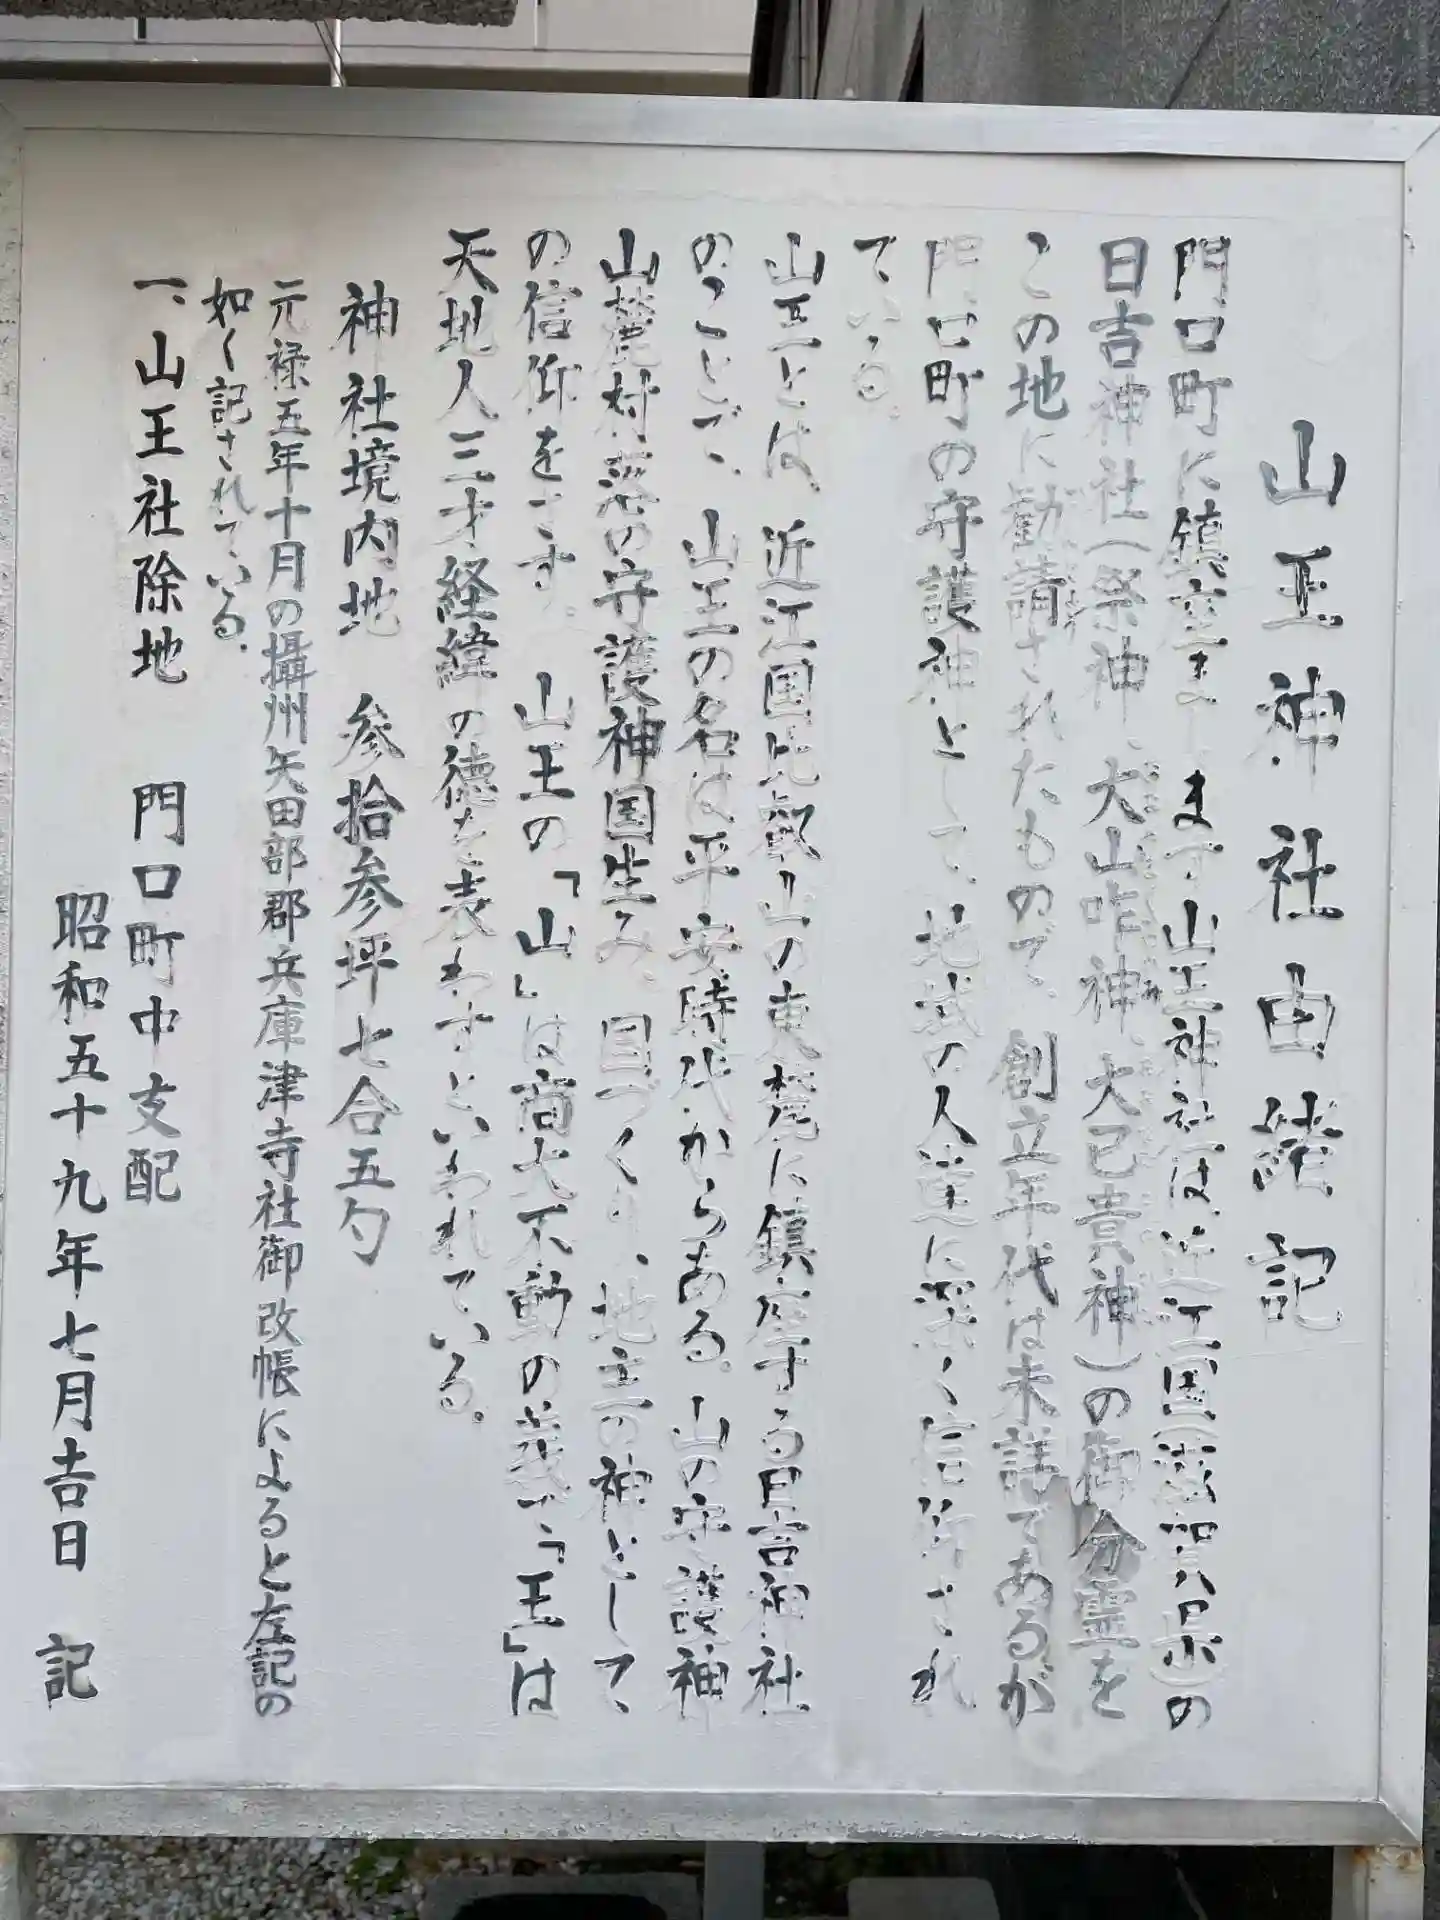 山王神社由緒記
門口町に鎮座まします山王神社は、近江国(滋賀県)の
日吉神社(祭神、大山咋神、大己貴神)の御分霊を
この地に勧請されたもので、創立年代は未詳であるが
門口町の守護神として、地域の人達に深く信仰され
ている。
山王とは、近江国比叡山の東麓に鎮座する日吉神社
のことで、山王の名は平安時代からある。山の守護神
山麓村落の守護神国生み、国づくり、地主の神として、
の信仰をさす。山王の「山」は高大不動の義で、「王」は
天地人三才経緯の徳を表わすといわれている。
神社境内地 参拾参坪七合五勺
元禄五年十月の攝州矢田部郡兵庫津寺社御改帳によると左記の
如く記されている。
一、山王社除地 門口町中支配
昭和五十九年七月吉日 記